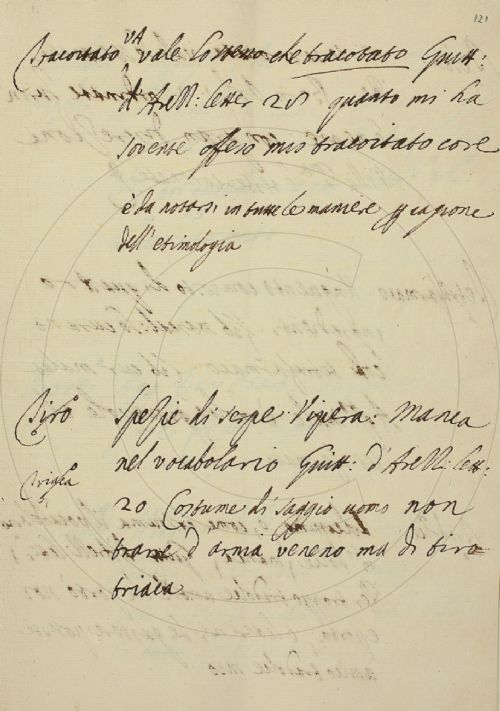 121
Tracoitato VA vale lo stesso che tracotato Guitt:
d'Arezz: letter 28 quanto mi ha
sovente offeso mio tracoitato core
è da notarsi in tutte le maniere p cagione
dell'etimologia
Tiro Spezie di serpe: Vipera: Manca
nel vocabolario Guitt: d'Arezz: lett:
Triaca
20 Costume di saggio uomo non
trarre d'arma veneno ma di tiro
triaca